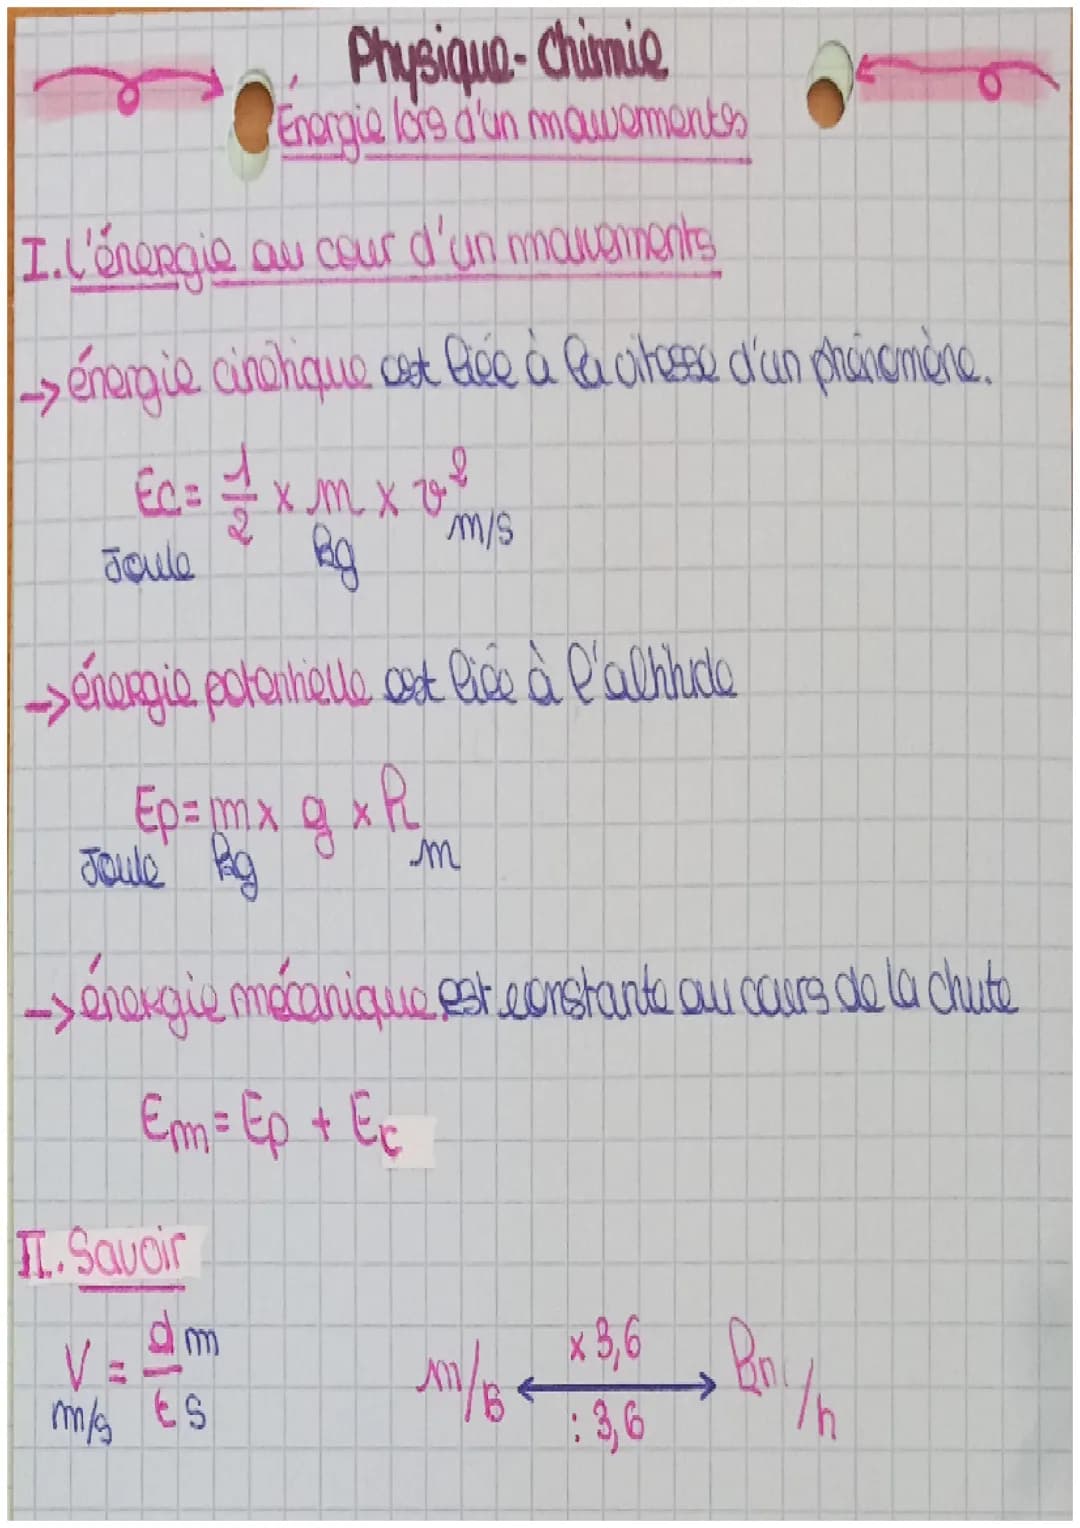 Physique-Chimie
Énergie lors d'un mouvements
I. L'énergie au cour d'un mouvements
→ énergie cinétique est liée à la vitesse d'un phénomène.
Ec = 1/2 x m x v²
Joule kg m/s
→ énergie potentielle est liée à l'altitude
Ep = m x g x h
Joule kg m
→ énergie mécanique est constante au cours de la chute
Em = Ep + Ec
II. Savoir
V = d/t m s
m/s
m/s x 3,6 km/h
: 3,6